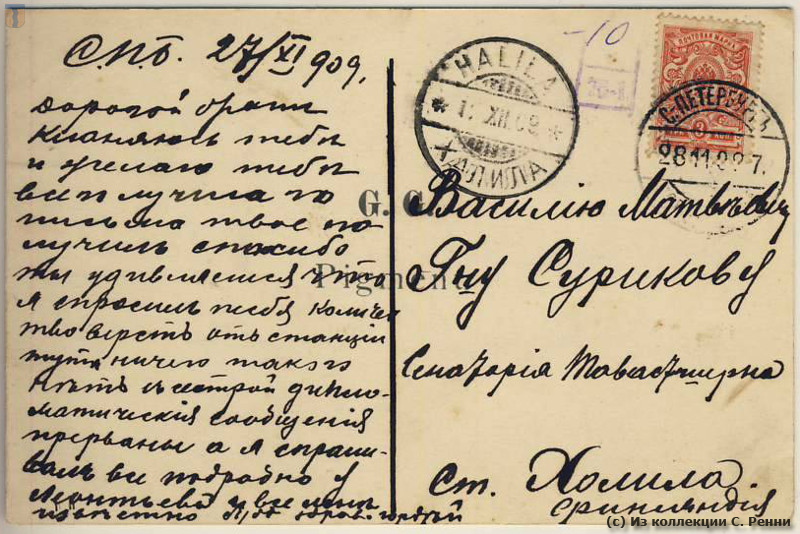 СПб. 27/XI 909.
Дорогой братъ
кланяюсь тебѣ
и желаю тебѣ
всего лучшаго
письмо твое по
лучилъ спасибо
ты удивляешся что
я спросилъ тебя количес
тво верстъ отъ станціи
тутъ ничего такого
нѣтъ съ сестрой дипло-
матическія сообщенія
прерваны а я спраши-
валъ все подробно у
Леонтьева и все мнѣ
извѣстно
HALILA
1. XII.09
ХАЛИЛА
-10
ПОЧТОВАЯ МАРКА
С.ПЕТЕРБУРГЪ
28 11.09 7.
G. G.
Pigment
Василію Матвѣевичу
Гну Сурикову
Санаторія Тавастшерна
ст. Холила
Финляндія
(c) Из коллекции С. Ренни